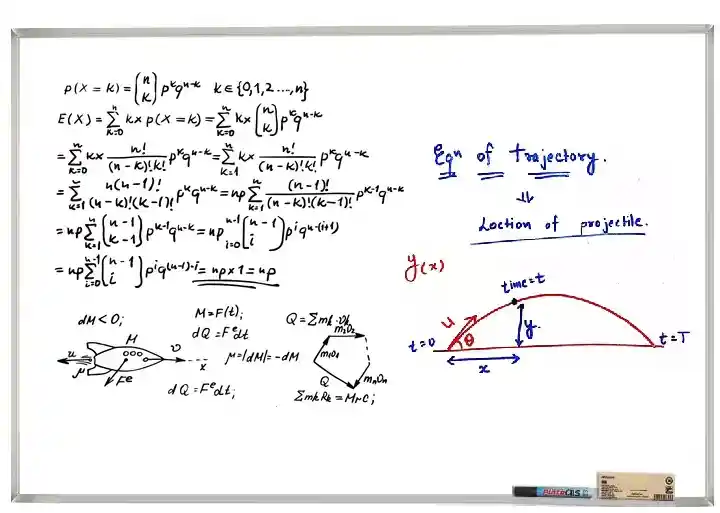 p(X = k) = (n k) p^k q^n-k k ∈ {0,1,2 ...,n}
E(X) = Σ k=0 n kx p(X = k) = Σ k=0 n kx (n k) p^k q^n-k
= Σ k=0 n kx n!/(n-k)!k! p^k q^n-k = Σ k=1 n kx n!/(n-k)!k! p^k q^n-k
= Σ k=1 n n(n-1)!/(n-k)!(k-1)! p^k q^n-k = np Σ k=1 n (n-1)!/(n-k)!(k-1)! p^k-1 q^n-k
= np Σ k=1 n (n-1 k-1) p^k-1 q^n-k = np n-1 i=0 (n-1 i) p^i q^n-(i+1)
= np Σ i=0 n-1 (n-1 i) p^i q^(n-1)-i = np x 1 = np
dM < 0;
M
u
μ
F^e
v
x
M = F(t);
dQ = F^e dt
μ = |dM| = -dM
dQ = F^e dt;
Q = Σ mk·vk
m₂v₂
m₁v₁
Q
mₙvₙ
Σ mk Rk = M rc;
Eqⁿ of trajectory.
⇓
Loction of projectile.
y(x)
time = t
u
θ
y
t=0
t=T
x